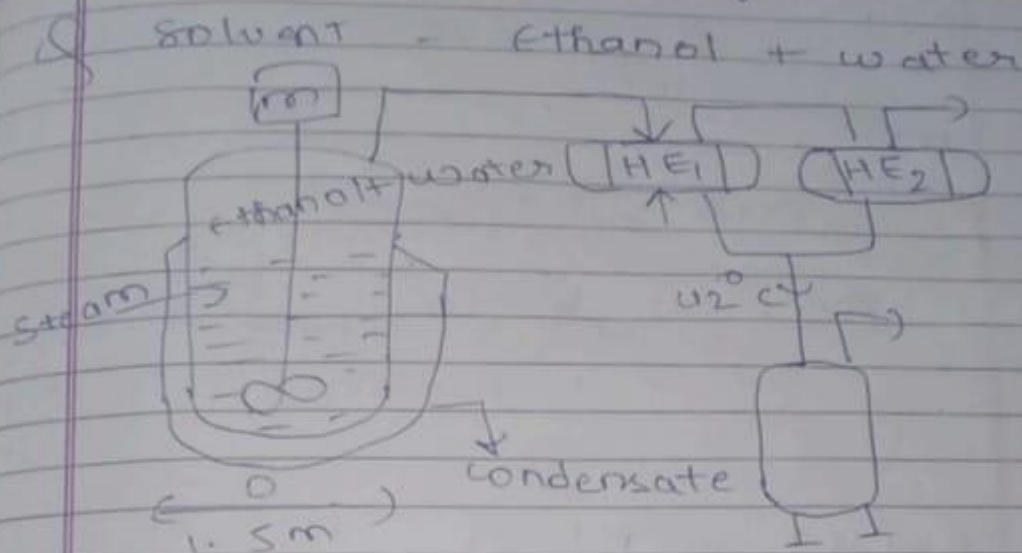 Solvent - Ethanol + water
m
ethanol + water
HE1
HE2
steam
42°C
condensate
D
1.5m